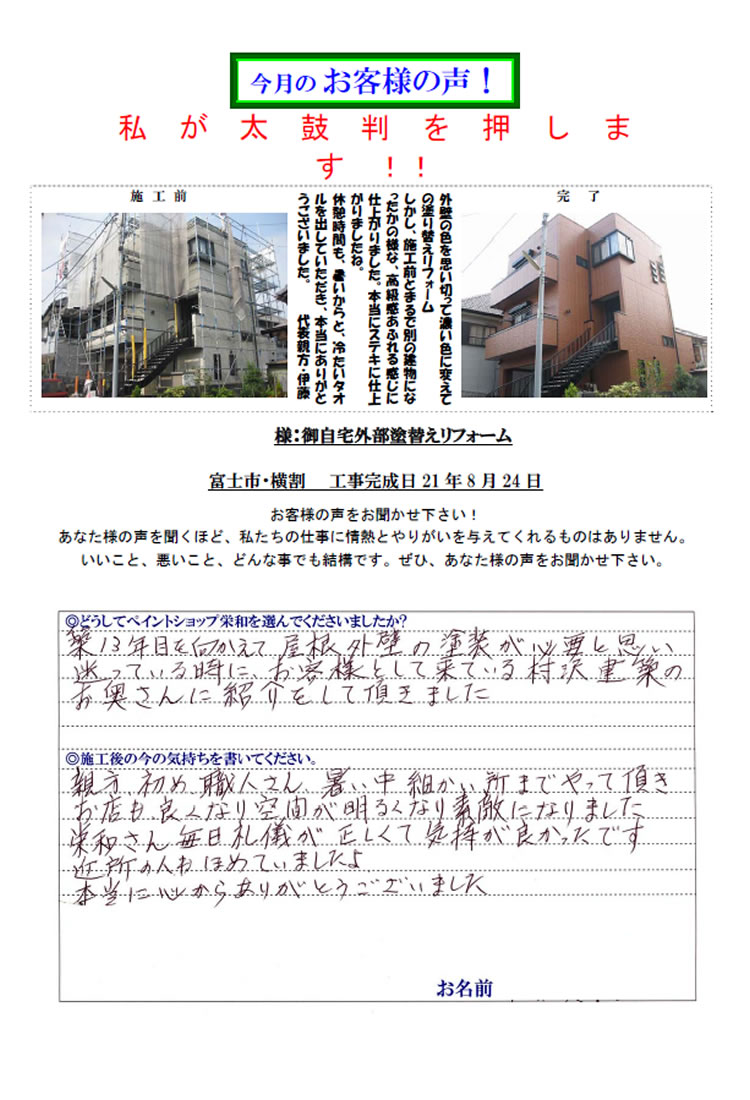 今月の お客様の声！
私が太鼓判を押しま
す！！
施工前
外壁の色を思い切って濃い色に変えて
の塗り替えリフォーム
しかし、施工前とまるで別の建物にな
ったかの様な、高級感あふれる感じに
仕上がりました。本当にステキに仕上
がりましたね。
休憩時間も、暑いからと、冷たいタオ
ルを出していただき、本当にありがと
うございました。　代表親方・伊藤
完了
様：御自宅外部塗替えリフォーム
富士市・横割　工事完成日21年8月24日
お客様の声をお聞かせ下さい！
あなた様の声を聞くほど、私たちの仕事に情熱とやりがいを与えてくれるものはありません。
いいこと、悪いこと、どんな事でも結構です。ぜひ、あなた様の声をお聞かせ下さい。
◎どうしてペイントショップ栄和を選んでくださいましたか？
築13年目を向かえて 屋根外壁の塗装が必要と思い
迷っている時に、お客様として来ている村沢建築の
お奥さんに紹介をして頂きました
◎施工後の今の気持ちを書いてください。
親方、初め、職人さん、暑い中 細かい所までやって頂き
お店も良くなり空間が明るくなり素敵になりました
栄和さん毎日礼儀が正しくて気持が良かったです
近所の人もほめていましたよ
本当に心からありがとうございました
お名前